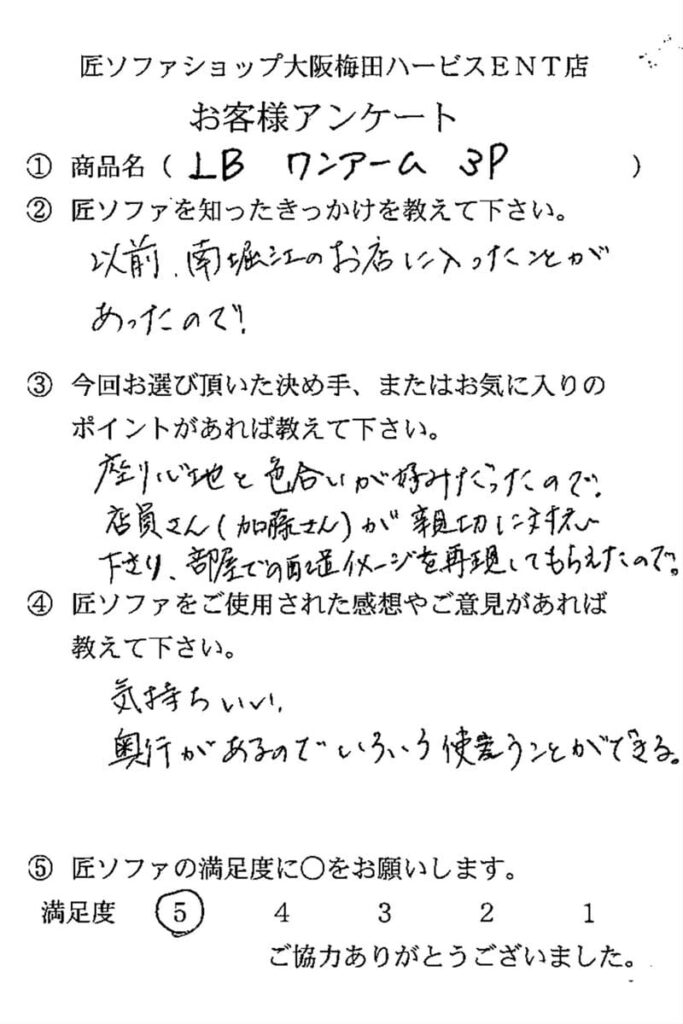 匠ソファショップ大阪梅田ハービスENT店
お客様アンケート
① 商品名（ LB ワンアーム 3P ）
② 匠ソファを知ったきっかけを教えて下さい。
以前、南堀江のお店に入ったことが
あったので。
③ 今回お選び頂いた決め手、またはお気に入りの
ポイントがあれば教えて下さい。
座り心地と色合いが好みだったので。
店員さん(加藤さん)が親切に
下さり、部屋での配置イメージを再現してもらえたので。
④ 匠ソファをご使用された感想やご意見があれば
教えて下さい。
気持ちいい。
奥行があるのでいろいろ使うことができる。
⑤ 匠ソファの満足度に○をお願いします。
満足度 5 4 3 2 1
ご協力ありがとうございました。